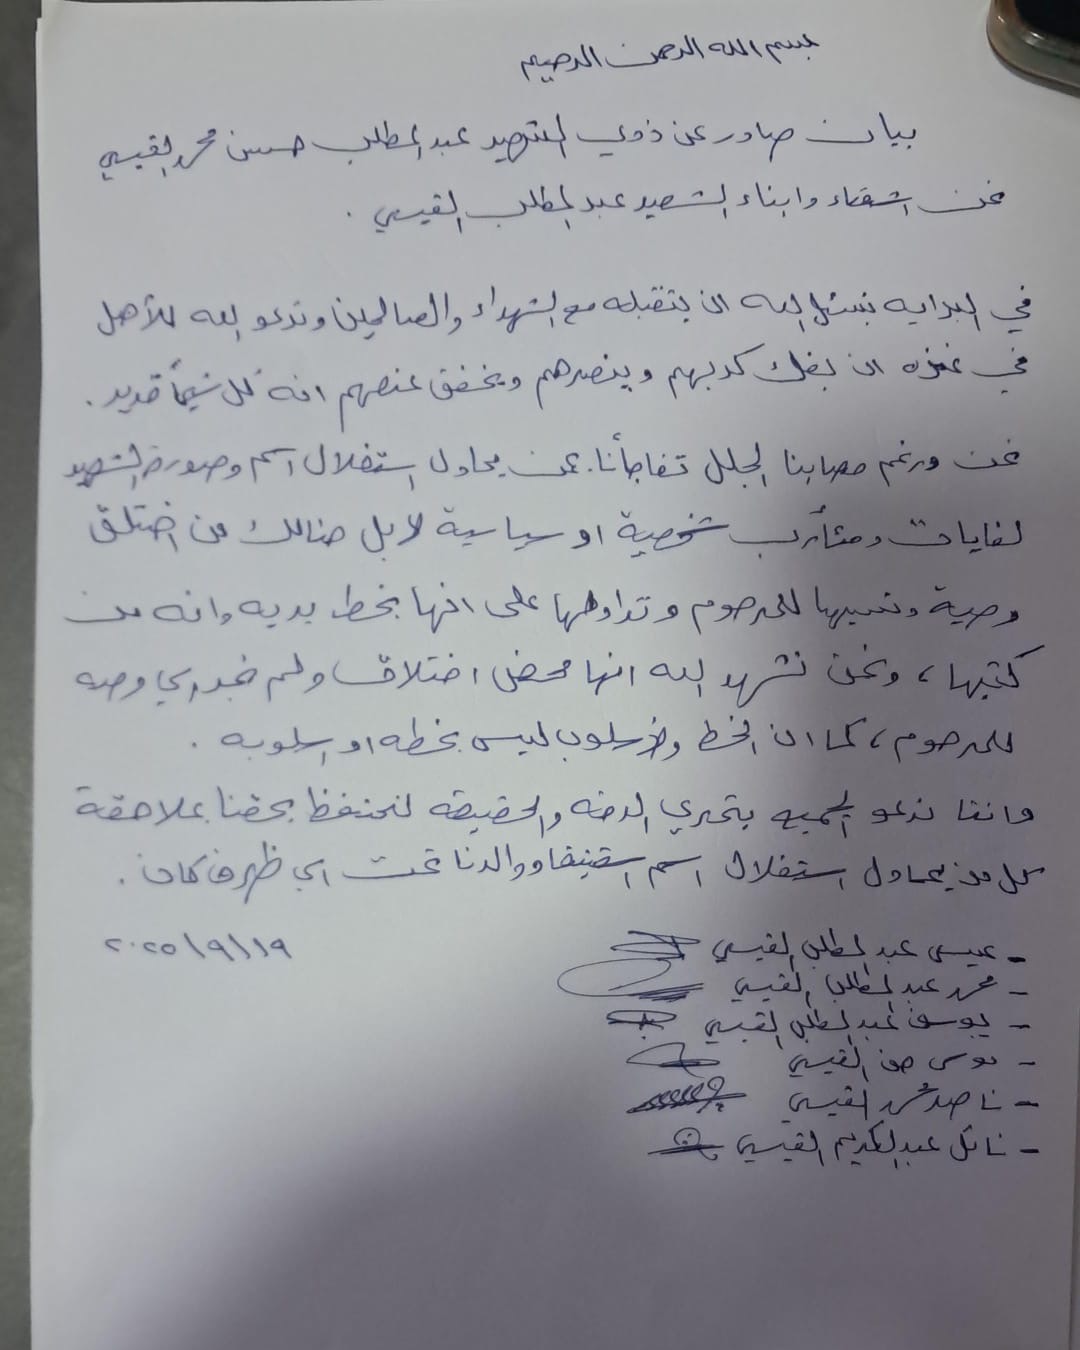 بسم الله الرحمن الرحيم
بيان صادر عن ذوي الشهيد عبد المطلب حسن محمد القيسي
نحن اشقاء وابناء الشهيد عبد المطلب القيسي .
في البدايه نسئل الله ان يتقبله مع الشهداء والصالحين وندعو الله للأهل
في غزه ان يفك كربهم وينصرهم ويخفف عنهم انه كل شيئاً قدير .
نحن ورغم مصابنا الجلل تفاجأنا بمن يحاول استغلال اسم وصورة الشهيد
لغايات ومئأرب شخصية او سياسية لابل هنالك من اختلق
وصية ونسبها للمرحوم وتداولها على انها بخط يديه وانه من
كتبها ، ونحن نشهد الله انها محض اختلاق ولم نجد اي وصيه
للمرحوم ، كما ان الخط والاسلوب ليس بخطه او اسلوبه .
واننا ندعو الجميع بتحري الدقه والحقيقه لنحتفظ بحقنا بملاحقة
كل من يحاول استغلال اسم شقيقنا ووالدنا تحت اي ظرف كان .
- عيسى عبد المطلب القيسي ٢٠٢٥/٩/١٩
- محمد عبد المطلب القيسي
- يوسف عبد المطلب القيسي
- موسى القيسي
- ناصر محمد القيسي
- نائل عبد الكريم القيسي